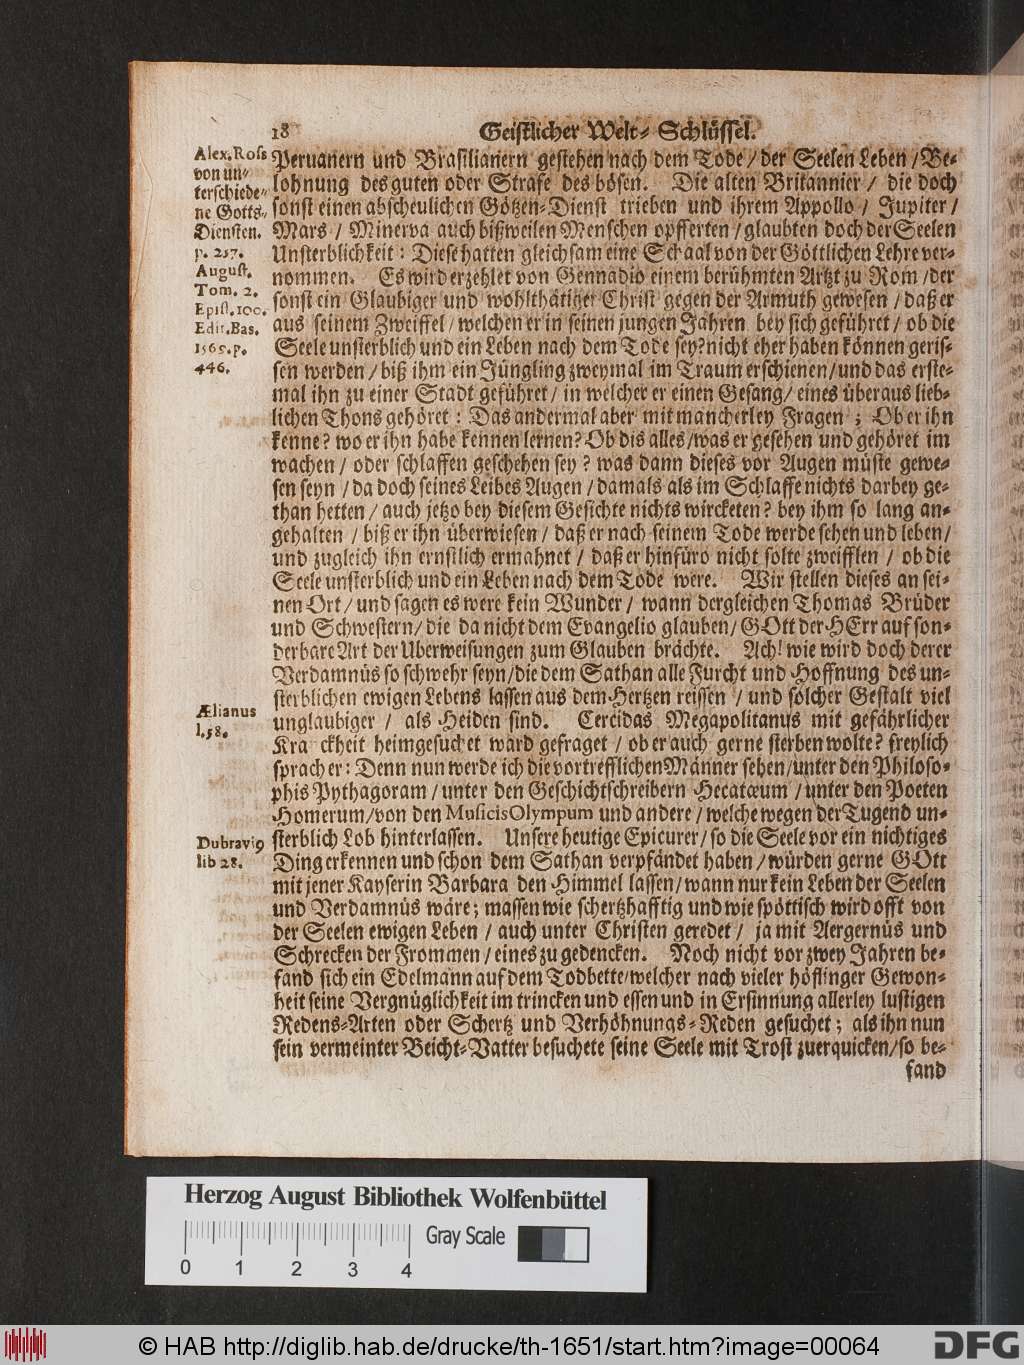 18 Geistlicher Welt- Schlüssel.
Alex. Ross
von un-
terschiede-
ne Gotts-
Diensten.
p. 257.
August.
Tom. 2.
Epist. 100.
Edit. Bas.
1569. p.
446.
Peruanern und Brasilianern gestehen nach dem Tode / der Seelen Leben / Be-
lohnung des guten oder Strafe des bösen. Die alten Britannier / die doch
sonst einen abscheulichen Götzen-Dienst trieben und ihrem Appollo / Jupiter /
Mars / Minerva auch bißweilen Menschen opfferten / glaubten doch der Seelen
Unsterblichkeit: Diese hatten gleichsam eine Schaal von der Göttlichen Lehre ver-
nommen. Es wird erzehlet von Gennadio einem berühmten Artzt zu Rom / der
sonst ein Glaubiger und wohlthätiger Christ gegen der Armuth gewesen / daß er
aus seinem Zweiffel / welchen er in seinen jungen Jahren bey sich geführet / ob die
Seele unsterblich und ein Leben nach dem Tode sey? nicht eher haben können geris-
sen werden / biß ihm ein Jüngling zweymal im Traum erschienen / und das erste-
mal ihn zu einer Stadt geführet / in welcher er einen Gesang / eines überaus lieb-
lichen Thons gehöret: Das andermal aber mit mancherley Fragen; Ob er ihn
kenne? wo er ihn habe kennen lernen? Ob dis alles / was er gesehen und gehöret im
wachen / oder schlaffen geschehen sey? was dann dieses vor Augen müste gewe-
sen seyn / da doch seines Leibes Augen / damals als im Schlaffe nichts darbey ge-
than hetten / auch jetzo bey diesem Gesichte nichts wircketen? bey ihm so lang an-
gehalten / biß er ihn überwiesen / daß er nach seinem Tode werde sehen und leben /
und zugleich ihn ernstlich ermahnet / daß er hinfüro nicht solte zweifflen / ob die
Seele unsterblich und ein Leben nach dem Tode were. Wir stellen dieses an sei-
nen Ort / und sagen es were kein Wunder / wann dergleichen Thomas Brüder
und Schwestern / die da nicht dem Evangelio glauben / GOtt der HErr auf son-
derbare Art der Uberweisungen zum Glauben brächte. Ach! wie wird doch derer
Verdamnüs so schwehr seyn / die dem Sathan alle Furcht und Hoffnung des un-
sterblichen ewigen Lebens lassen aus dem Hertzen reissen / und solcher Gestalt viel
unglaubiger / als Heiden sind. Cercidas Megapolitanus mit gefährlicher
Kra ckheit heimgesuchet ward gefraget / ob er auch gerne sterben wolte? freylich
sprach er: Denn nun werde ich die vortrefflichen Männer sehen / unter den Philoso-
phis Pythagoram / unter den Geschichtschreibern Hecatæum / unter den Poeten
Homerum / von den Musicis Olympum und andere / welche wegen der Tugend un-
sterblich Lob hinterlassen. Unsere heutige Epicurer / so die Seele vor ein nichtiges
Ding erkennen und schon dem Sathan verpfändet haben / würden gerne GOtt
mit jener Kayserin Barbara den Himmel lassen / wann nur kein Leben der Seelen
und Verdamnüs wäre; massen wie schertzhafftig und wie spöttisch wird offt von
der Seelen ewigen Leben / auch unter Christen geredet / ja mit Aergernüs und
Schrecken der Frommen / eines zu gedencken. Noch nicht vor zwey Jahren be-
fand sich ein Edelmann auf dem Todbette / welcher nach vieler höflinger Gewon-
heit seine Vergnüglichkeit im trincken und essen und in Ersinnung allerley lustigen
Redens-Arten oder Schertz und Verhöhnungs-Reden gesuchet; als ihn nun
sein vermeinter Beicht-Vatter besuchete seine Seele mit Trost zuerquicken / so be-
fand
Ælianus
l. 58.
Dubraviꝰ
lib 28.
Herzog August Bibliothek Wolfenbüttel
Gray Scale
0 1 2 3 4
© HAB http://diglib.hab.de/drucke/th-1651/start.htm?image=00064
DFG